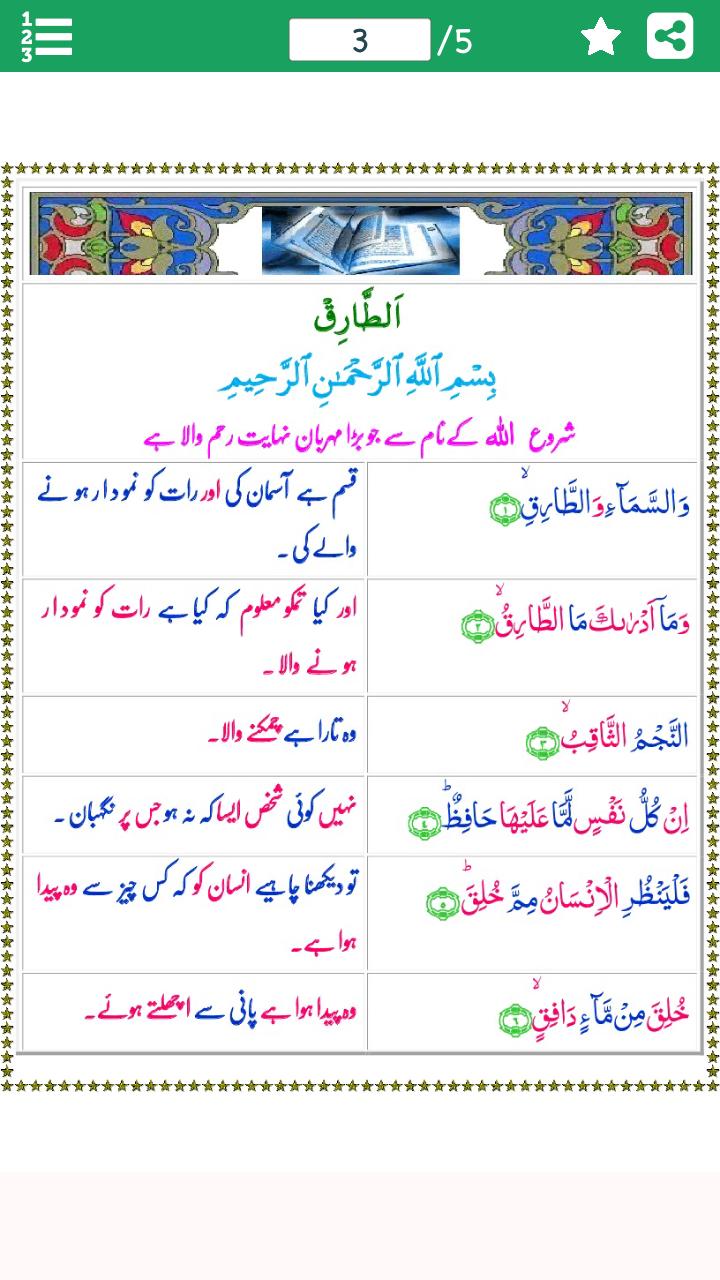 1
2
3
3 /5
اَلطَّارِقْ
بِسْمِ ٱللَّهِ ٱلرَّحْمَـٰنِ ٱلرَّحِيمِ
شروع اللہ کے نام سے جو بڑا مہربان نہایت رحم والا ہے
وَالسَّمَآءِ وَالطَّارِقِۙ ﴿۱﴾
قسم ہے آسمان کی اور رات کو نمودار ہونے
والے کی۔
وَمَآ اَدْرٰىكَ مَا الطَّارِقُۙ ﴿۲﴾
اور کیا تمکو معلوم کہ کیا ہے رات کو نمودار
ہونے والا۔
النَّجْمُ الثَّاقِبُۙ ﴿۳﴾
وہ تارا ہے چمکنے والا۔
اِنْ كُلُّ نَفْسٍ لَّمَّا عَلَيْهَا حَافِظٌؕ ﴿۴﴾
نہیں کوئی شخص ایسا کہ نہ ہو جس پر نگہبان۔
فَلْيَنْظُرِ الْاِنْسَانُ مِمَّ خُلِقَؕ ﴿۵﴾
تو دیکھنا چاہیے انسان کو کہ کس چیز سے وہ پیدا
ہوا ہے۔
خُلِقَ مِنْ مَّآءٍ دَافِقٍۙ ﴿۶﴾
وہ پیدا ہوا ہے پانی سے اچھلتے ہوئے۔